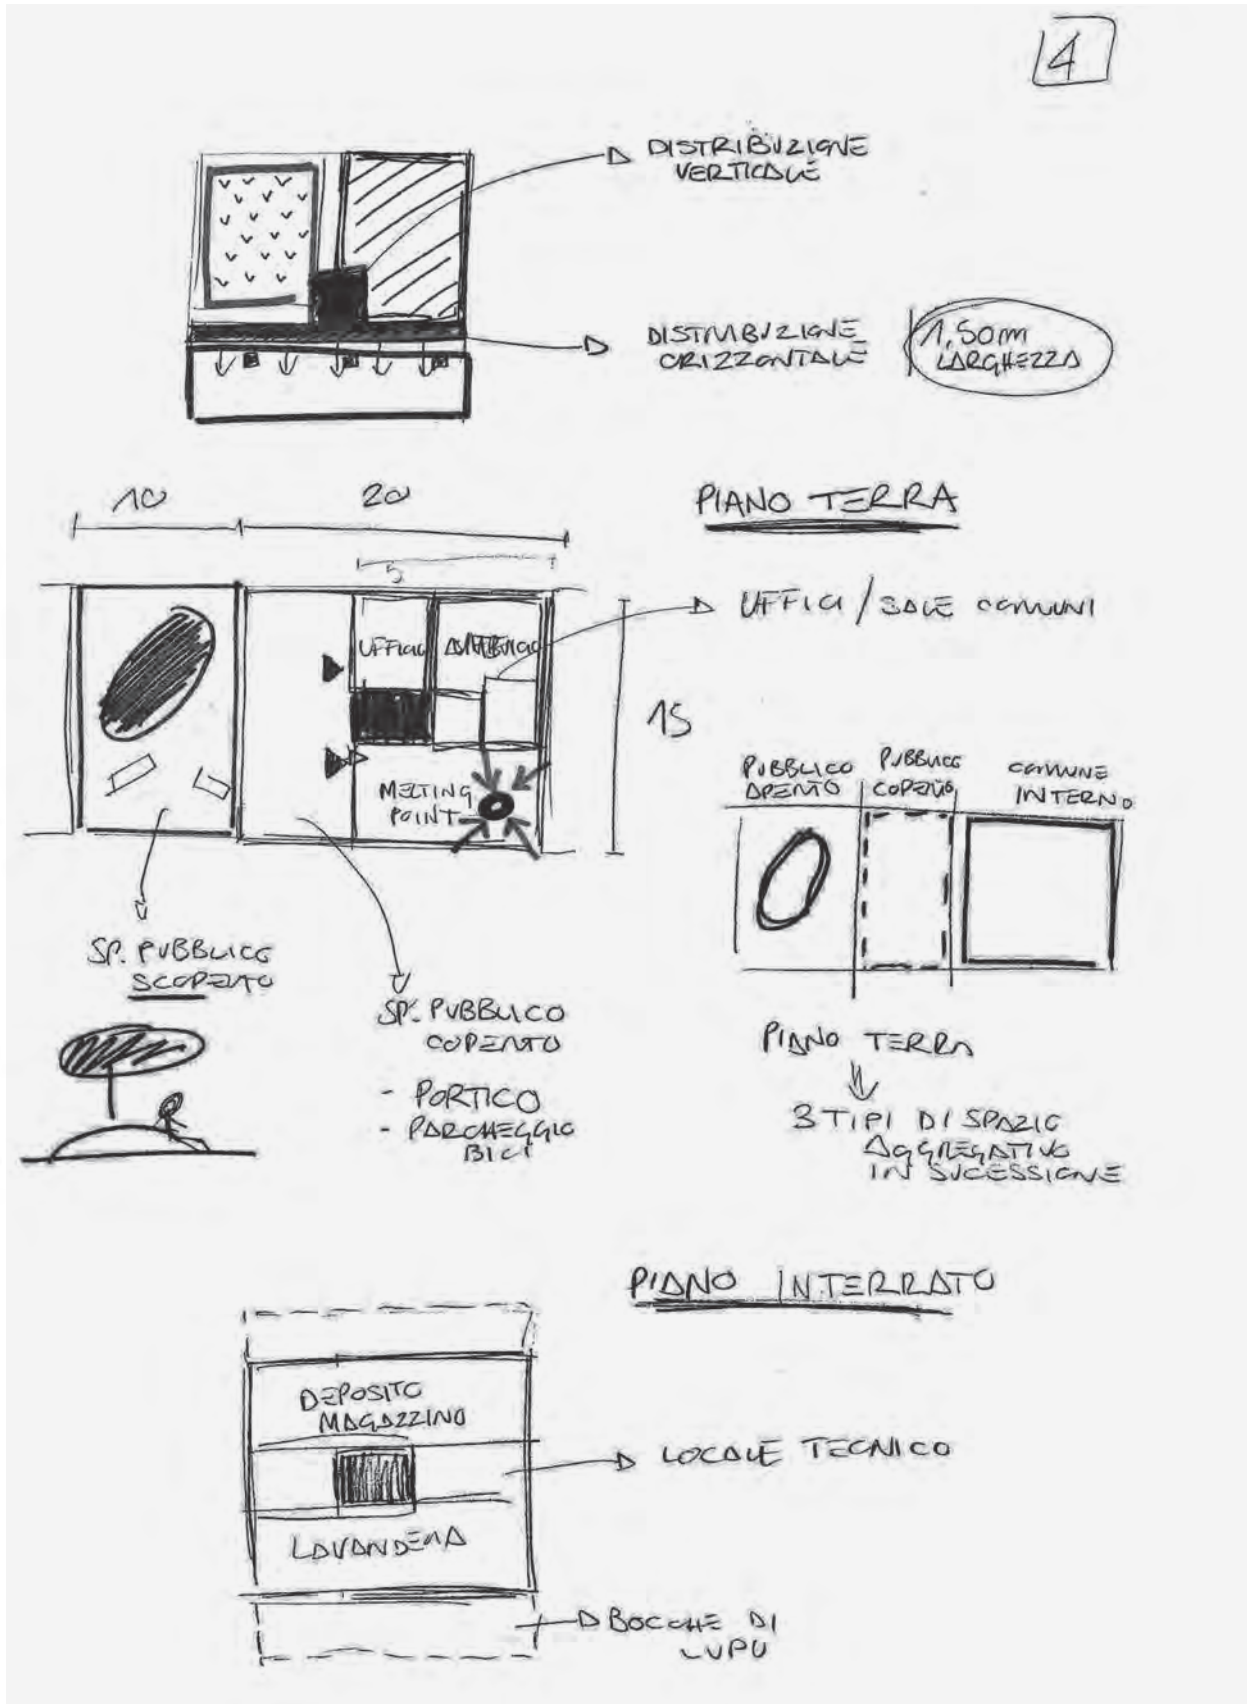 4
DISTRIBUZIONE
VERTICALE
DISTRIBUZIONE
ORIZZONTALE
1,50m
LARGHEZZA
PIANO TERRA
10
20
5
UFFICI / SALE COMUNI
UFFICIO
15
MELTING
POINT
SP. PUBBLICO
SCOPERTO
SP. PUBBLICO
COPERTO
- PORTICO
- PARCHEGGIO
BICI
PUBBLICO
APERTO
PUBBLICO
COPERTO
COMUNE
INTERNO
PIANO TERRA
3 TIPI DI SPAZIO
AGGREGATIVO
IN SUCESSIONE
PIANO INTERRATO
DEPOSITO
MAGAZZINO
LOCALE TECNICO
LAVANDERIA
BOCCHE DI
LUPO